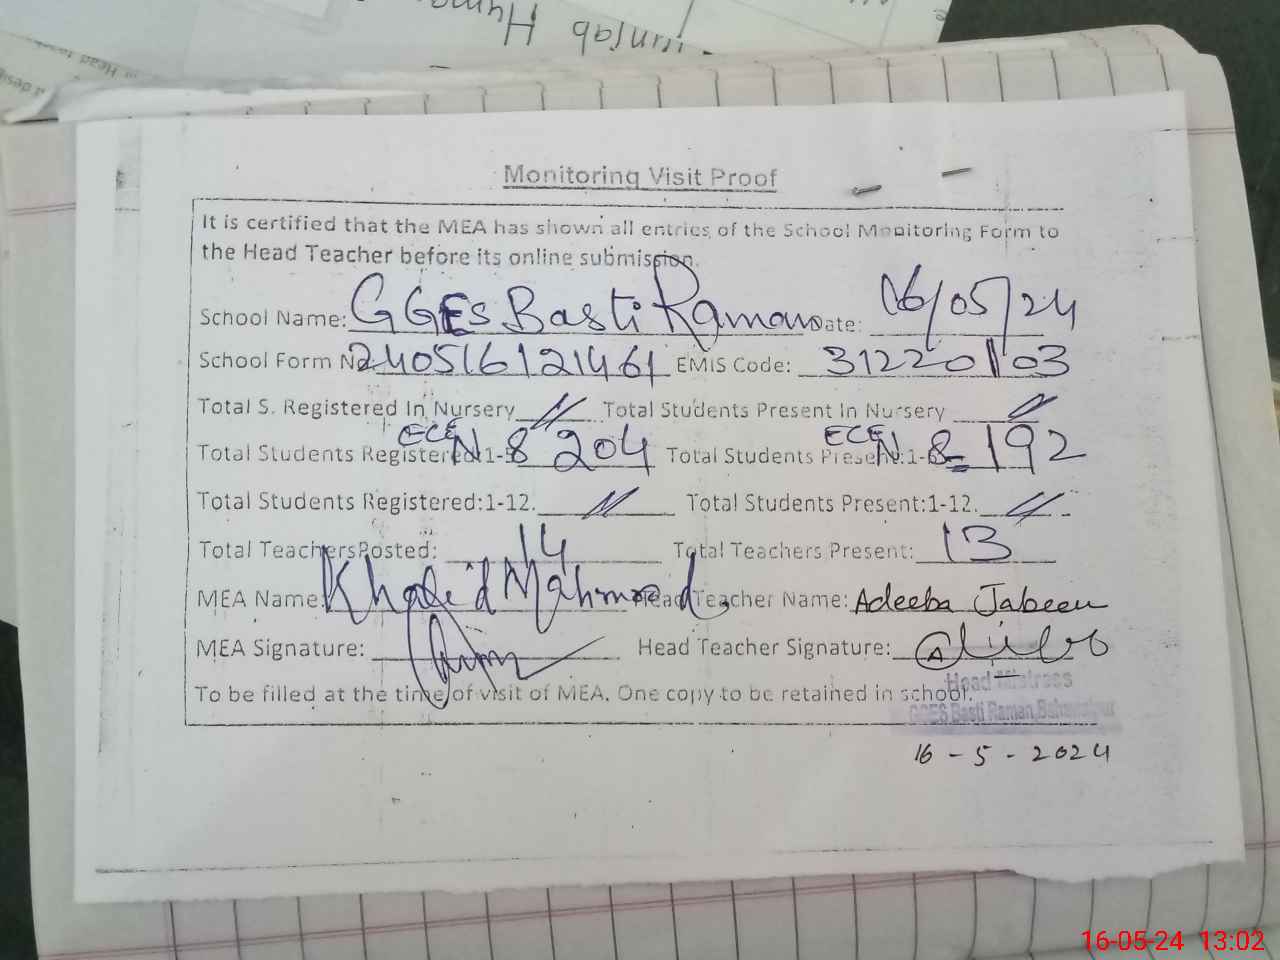 Punjab
Monitoring Visit Proof
It is certified that the MEA has shown all entries of the School Monitoring Form to
the Head Teacher before its online submission.
School Name: GGES Basti Raman Date: 16/05/24
School Form N 240516121461 EMIS Code: 31220103
Total S. Registered In Nursery Total Students Present In Nursery
ECE ECE
Total Students Registered:1- N-8 204 Total Students Present:1- N-8 192
Total Students Registered:1-12. Total Students Present:1-12.
Total Teachers Posted: 14 Total Teachers Present: 13
MEA Name: Khalid Mahmood Head Teacher Name: Adeeba Jabeen
MEA Signature: Head Teacher Signature:
To be filled at the time of visit of MEA. One copy to be retained in school.
Head Mistress
GGES Basti Raman, Bahawalpur
16-5-2024
16-05-24 13:02